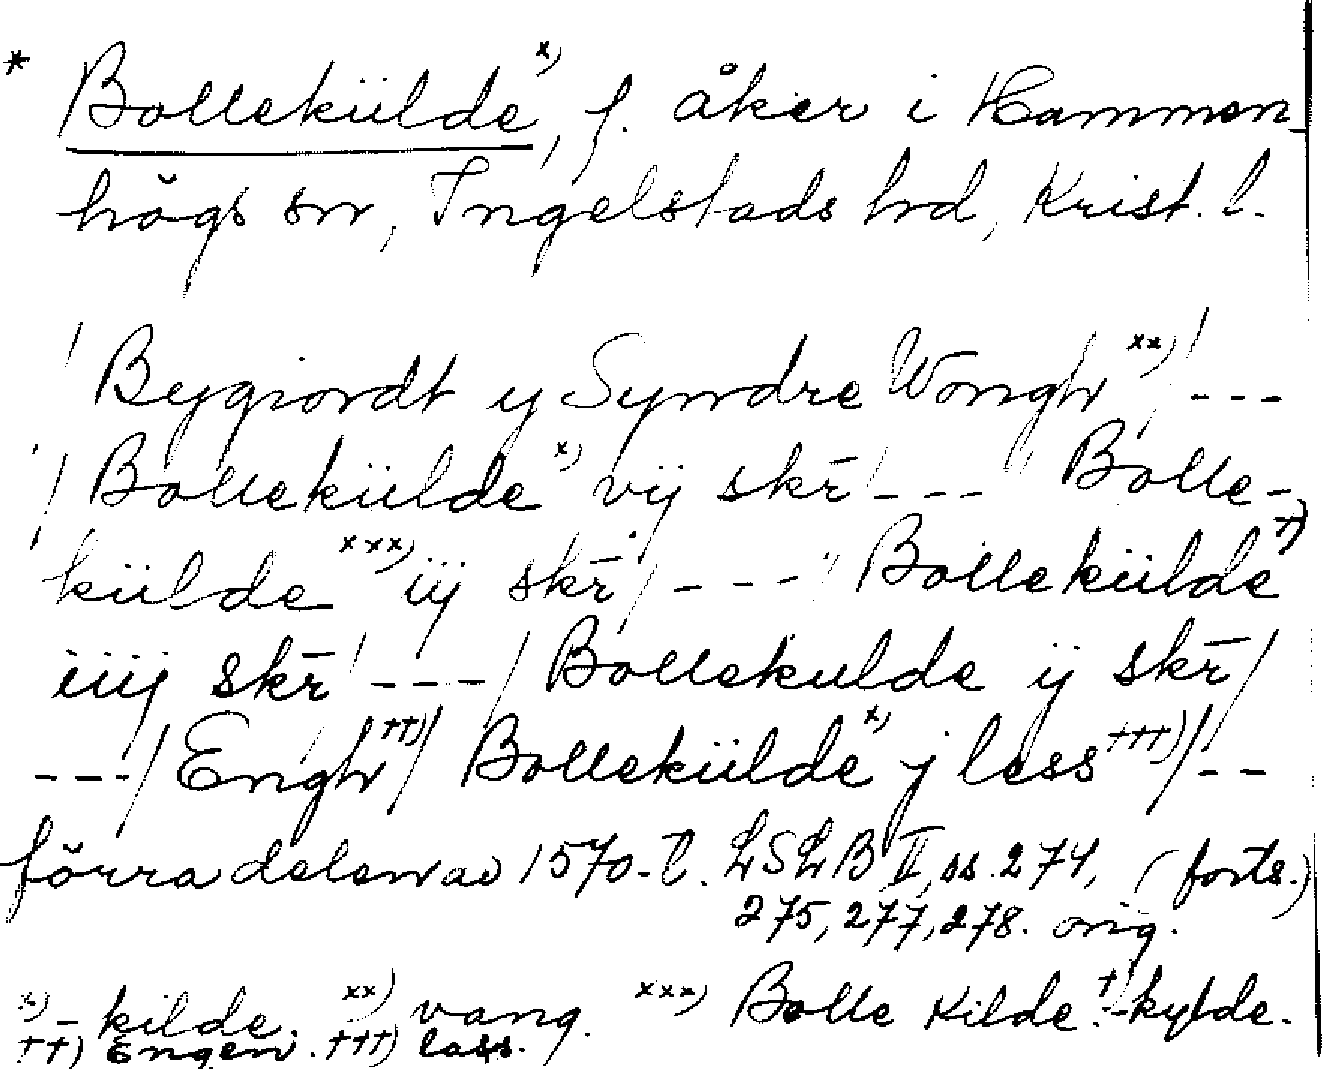 * Bollekülde x), f. åker i Hammen-
högs sn, Ingelstads hd, Krist. l.
/ Bygiordt y Syndre Wongh xx) / ---
/ Bollekülde x) vij skr̄ / --- Bolle-
külde xxx) iij skr̄ / --- / Bollekülde +)
iiij skr̄ / --- / Bollekulde ij skr̄ /
--- / Engh ++) / Bollekülde x) j less +++) / --
förra delen av 1570-t. LSLB II, ss. 274, (forts.)
275, 277, 278. orig.
x) - kilde. xx) vang. xxx) Bolle Kilde. +) -kylde.
++) Engen. +++) lass.